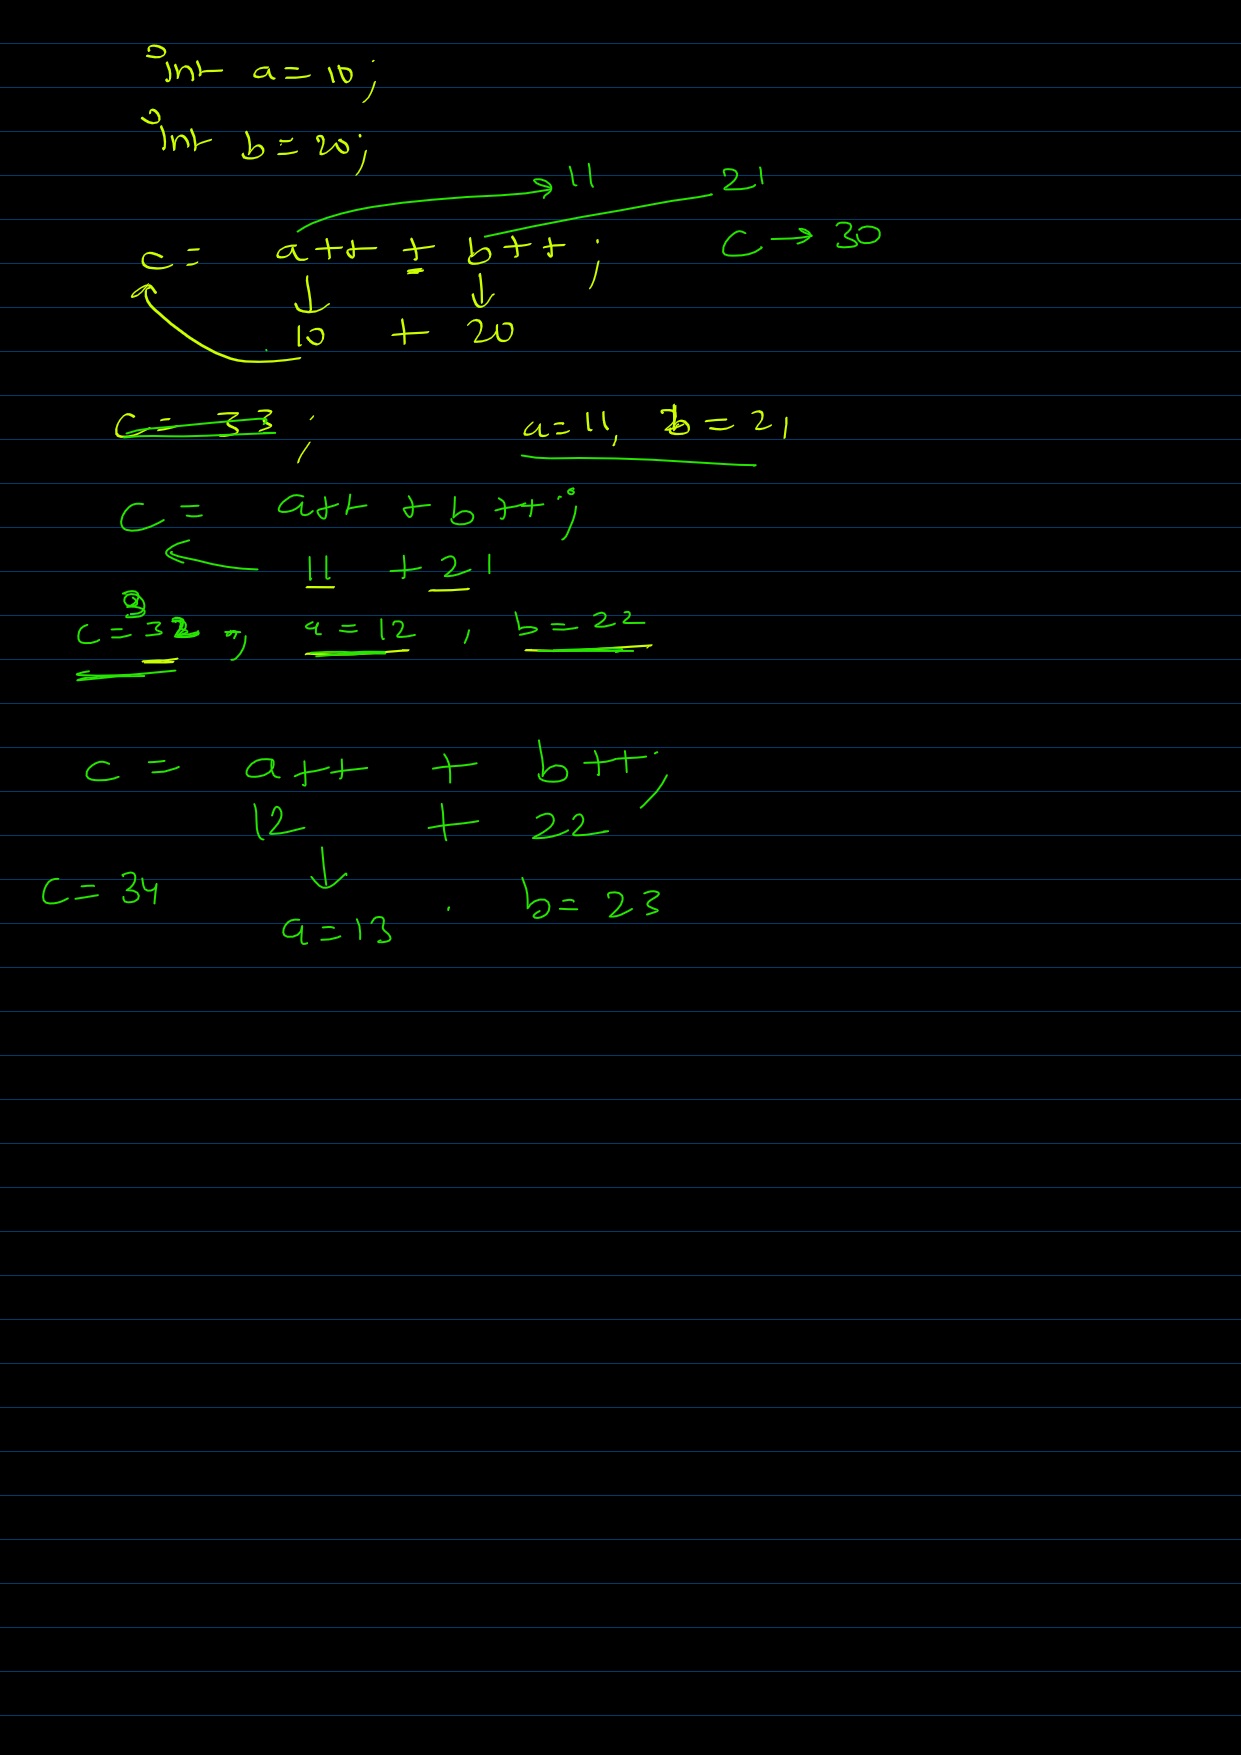 int a = 10;
int b = 20;
11 21
c = a++ + b++; C → 30
10 + 20
c = 33; a = 11, b = 21
C = a++ + b++;
11 + 21
c = 32, a = 12, b = 22
c = a++ + b++;
12 + 22
C = 34 b = 23
a = 13